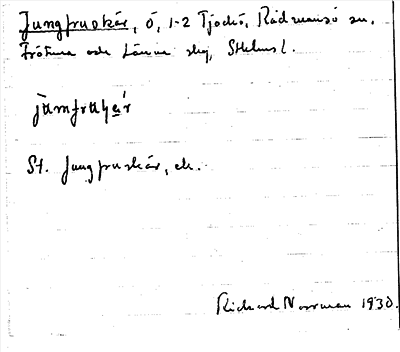 Jungfruskär, ö, 1-2 Tjockö, Rådmansö sn,
Frötuna och Länna skg, Sthlms l.
jumfruhär
St. Jungfruskär, ek.
Richard Norrman 1930.